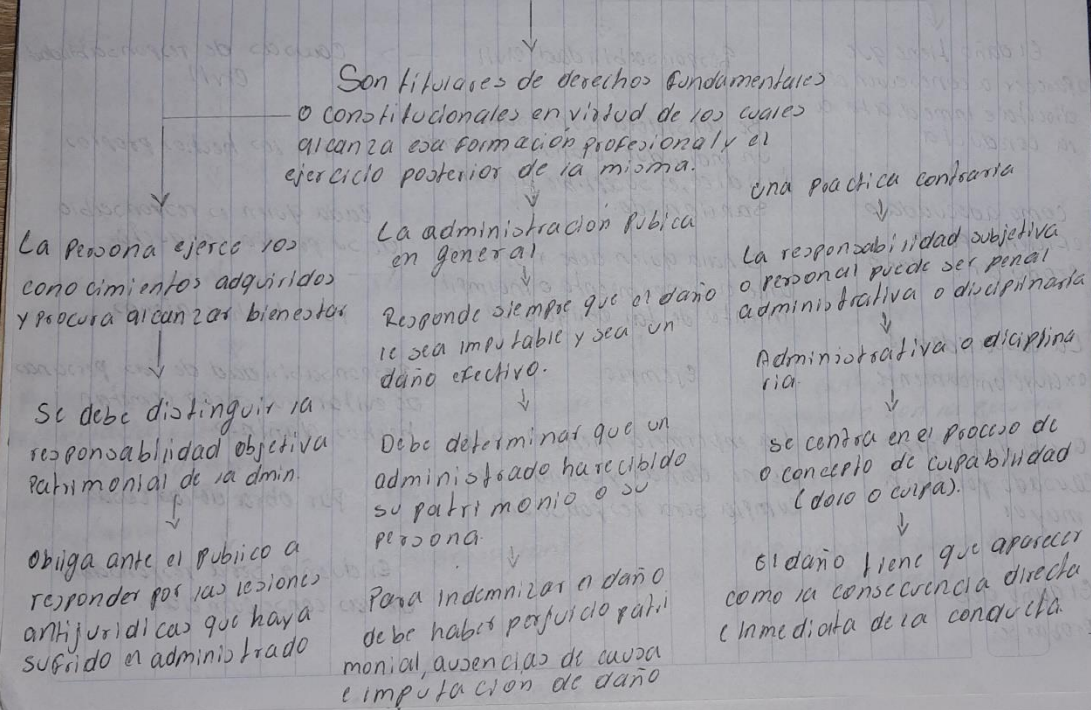 Son titulares de derechos fundamentales
o constitucionales en virtud de los cuales
alcanza esa formación profesional y el
ejercicio posterior de la misma.
La Persona ejerce los
conocimientos adquiridos
y procura alcanzar bienestar
Se debe distinguir la
responsabliidad objetiva
Patrimonial de la dmin.
Obliga ante el publico a
responder por las lesiones
antijuridicas que haya
sufrido el administrado
La administracion Pubica
en general
Responde siempre que el daño
le sea imputable y sea un
daño efectivo.
Debe determinar que un
administrado ha recibido
su patrimonio o su
persona.
Para indemnizar el daño
debe haber perjuicio patri
monial, ausencias de causa
e imputacion de daño
Una practica contraria
La responsabilidad subjetiva
o personal puede ser penal
administrativa o disciplinaria
Administrativa o diciplina
ria.
se centra en el proceso de
o concepto de culpabilidad
(dolo o culpa).
El daño tiene que aparecer
como la consecuencia directa
e inmediata de la conducta.